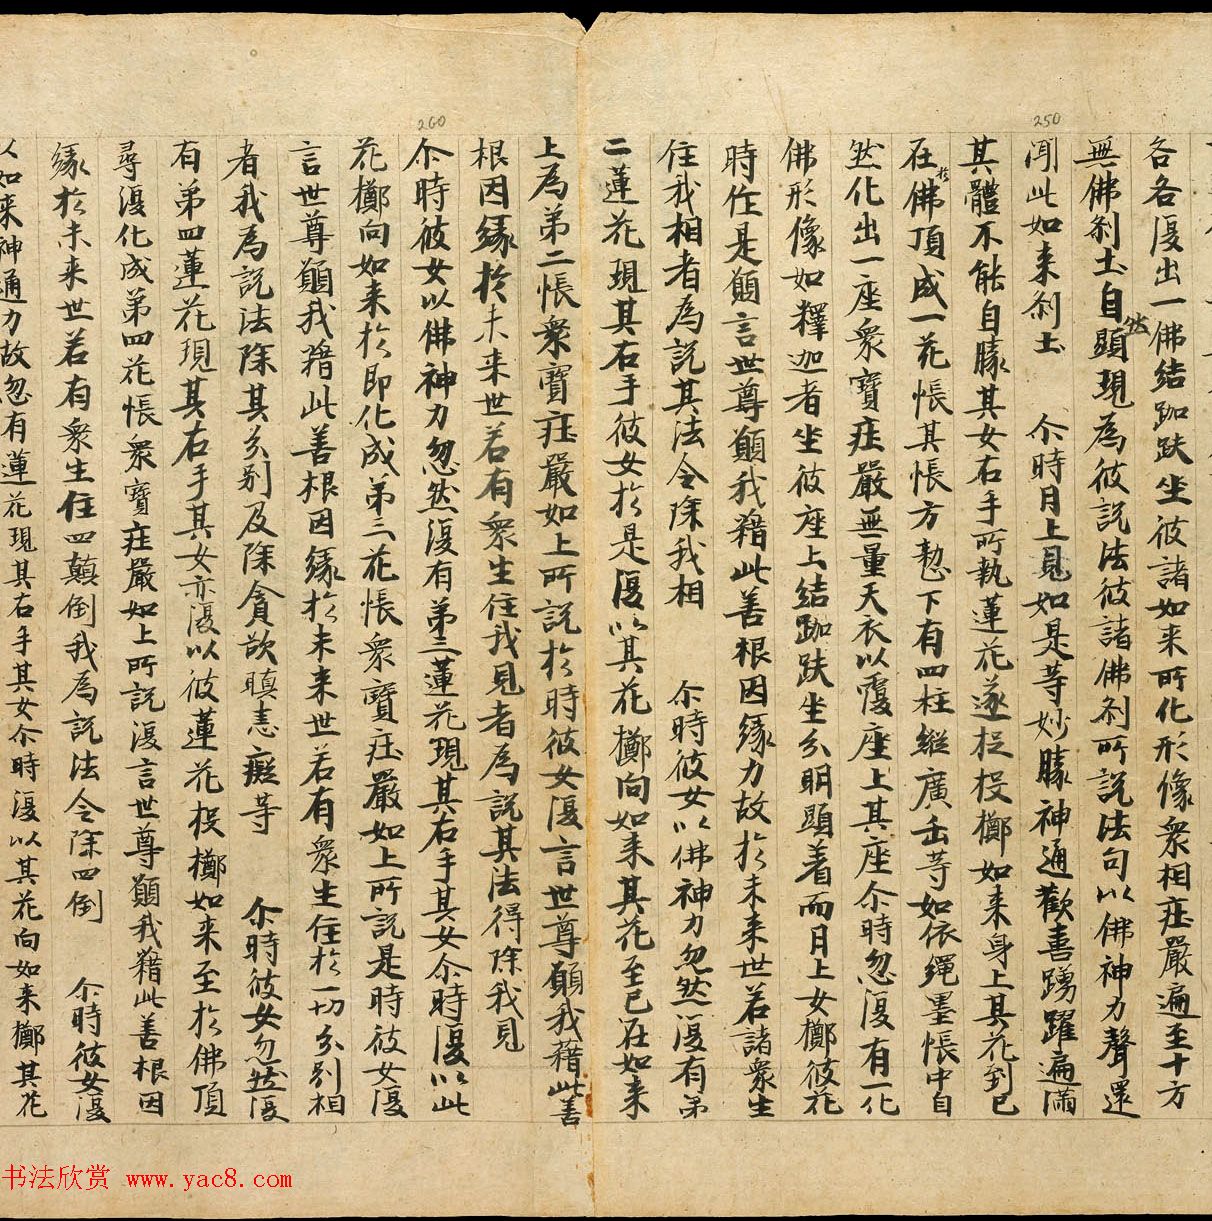 各各復出一佛結跏趺坐彼諸如来所化形像衆相莊嚴遍至十方
無佛剎土自然顯現為彼説法彼諸佛剎所説法句以佛神力聲還
聞此如来剎土 尒時月上見如是等妙勝神通歡喜踴躍遍滿
其體不能自勝其女右手所執蓮花遂捉投擲如来身上其花到已
在於佛頂成一花帳其帳方整下有四柱縱廣正等如依繩墨帳中自
然化出一座衆寶莊嚴無量天衣以覆座上其座尒時忽復有一化
佛形像如釋迦者坐彼座上結跏趺坐分明顯着而月上女擲彼花
時住是願言世尊願我藉此善根因緣力故於未来世若諸衆生
住我相者為説其法令除我相 尒時彼女以佛神力忽然復有弟
二蓮花現其右手彼女於是復以其花擲向如来其花至已在如来
上為弟二帳衆寶莊嚴如上所説於時彼女復言世尊願我藉此善
根因緣於未来世若有衆生住我見者為説其法得除我見
尒時彼女以佛神力忽然復有弟三蓮花現其右手其女尒時復以此
花擲向如来於即化成弟三花帳衆寶莊嚴如上所説是時彼女復
言世尊願我藉此善根因緣於未来世若有衆生住於一切分別相
者我為説法除其分別及除貪欲瞋恚癡等 尒時彼女忽然復
有弟四蓮花現其右手其女亦復以彼蓮花投擲如来至於佛頂
尋復化成弟四花帳衆寶莊嚴如上所説復言世尊願我藉此善根因
緣於未来世若有衆生住四顛倒我為説法令除四倒 尒時彼女復
以如来神通力故忽有蓮花現其右手其女尒時復以其花向如来擲其花
250
260
书法欣赏 www.yac8.com